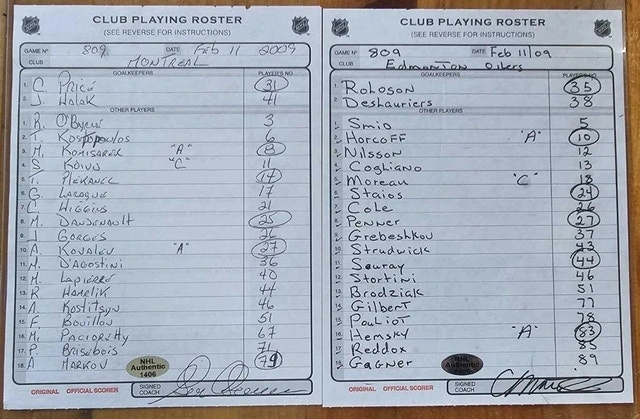 CLUB PLAYING ROSTER
(SEE REVERSE FOR INSTRUCTIONS)
GAME Nº 809 DATE Feb 11 2009
CLUB MONTREAL
GOALKEEPERS PLAYER'S NO.
1. C. Price 31
2. J. Halak 41
OTHER PLAYERS
1. R. O'Byrne 3
2. T. Kostopoulos 6
3. M. Komisarek "A" 8
4. S Koivu "C" 11
5. T. Plekanec 14
6. G. Laraque 17
7. C. Higgins 21
8. M. Dandenault 25
9. J Gorges 26
10. A. Kovalev "A" 27
11. M. D'Agostini 36
12. M. Lapierre 40
13. R Hamrlik 44
14. A. Kostitsyn 46
15. F. Bouillon 51
16. M. Pacioretty 67
17. P. Brisebois 71
18. A Markov 79
NHL
Authentic
1406
ORIGINAL OFFICIAL SCORER SIGNED COACH
CLUB PLAYING ROSTER
(SEE REVERSE FOR INSTRUCTIONS)
GAME Nº 809 DATE Feb 11/09
CLUB Edmonton Oilers
GOALKEEPERS PLAYER'S NO.
1. Roloson 35
2. Deslauriers 38
OTHER PLAYERS
1. Smid 5
2. Horcoff "A" 10
3. Nilsson 12
4. Cogliano 13
5. Moreau "C" 18
6. Staios 24
7. Cole 26
8. Penner 27
9. Grebeshkov 37
10. Strudwick 43
11. Souray 44
12. Stortini 46
13. Brodziak 51
14. Gilbert 77
15. Pouliot 78
16. Hemsky "A" 83
17. Reddox 85
18. Gagner 89
NHL
Authentic
ORIGINAL OFFICIAL SCORER SIGNED COACH